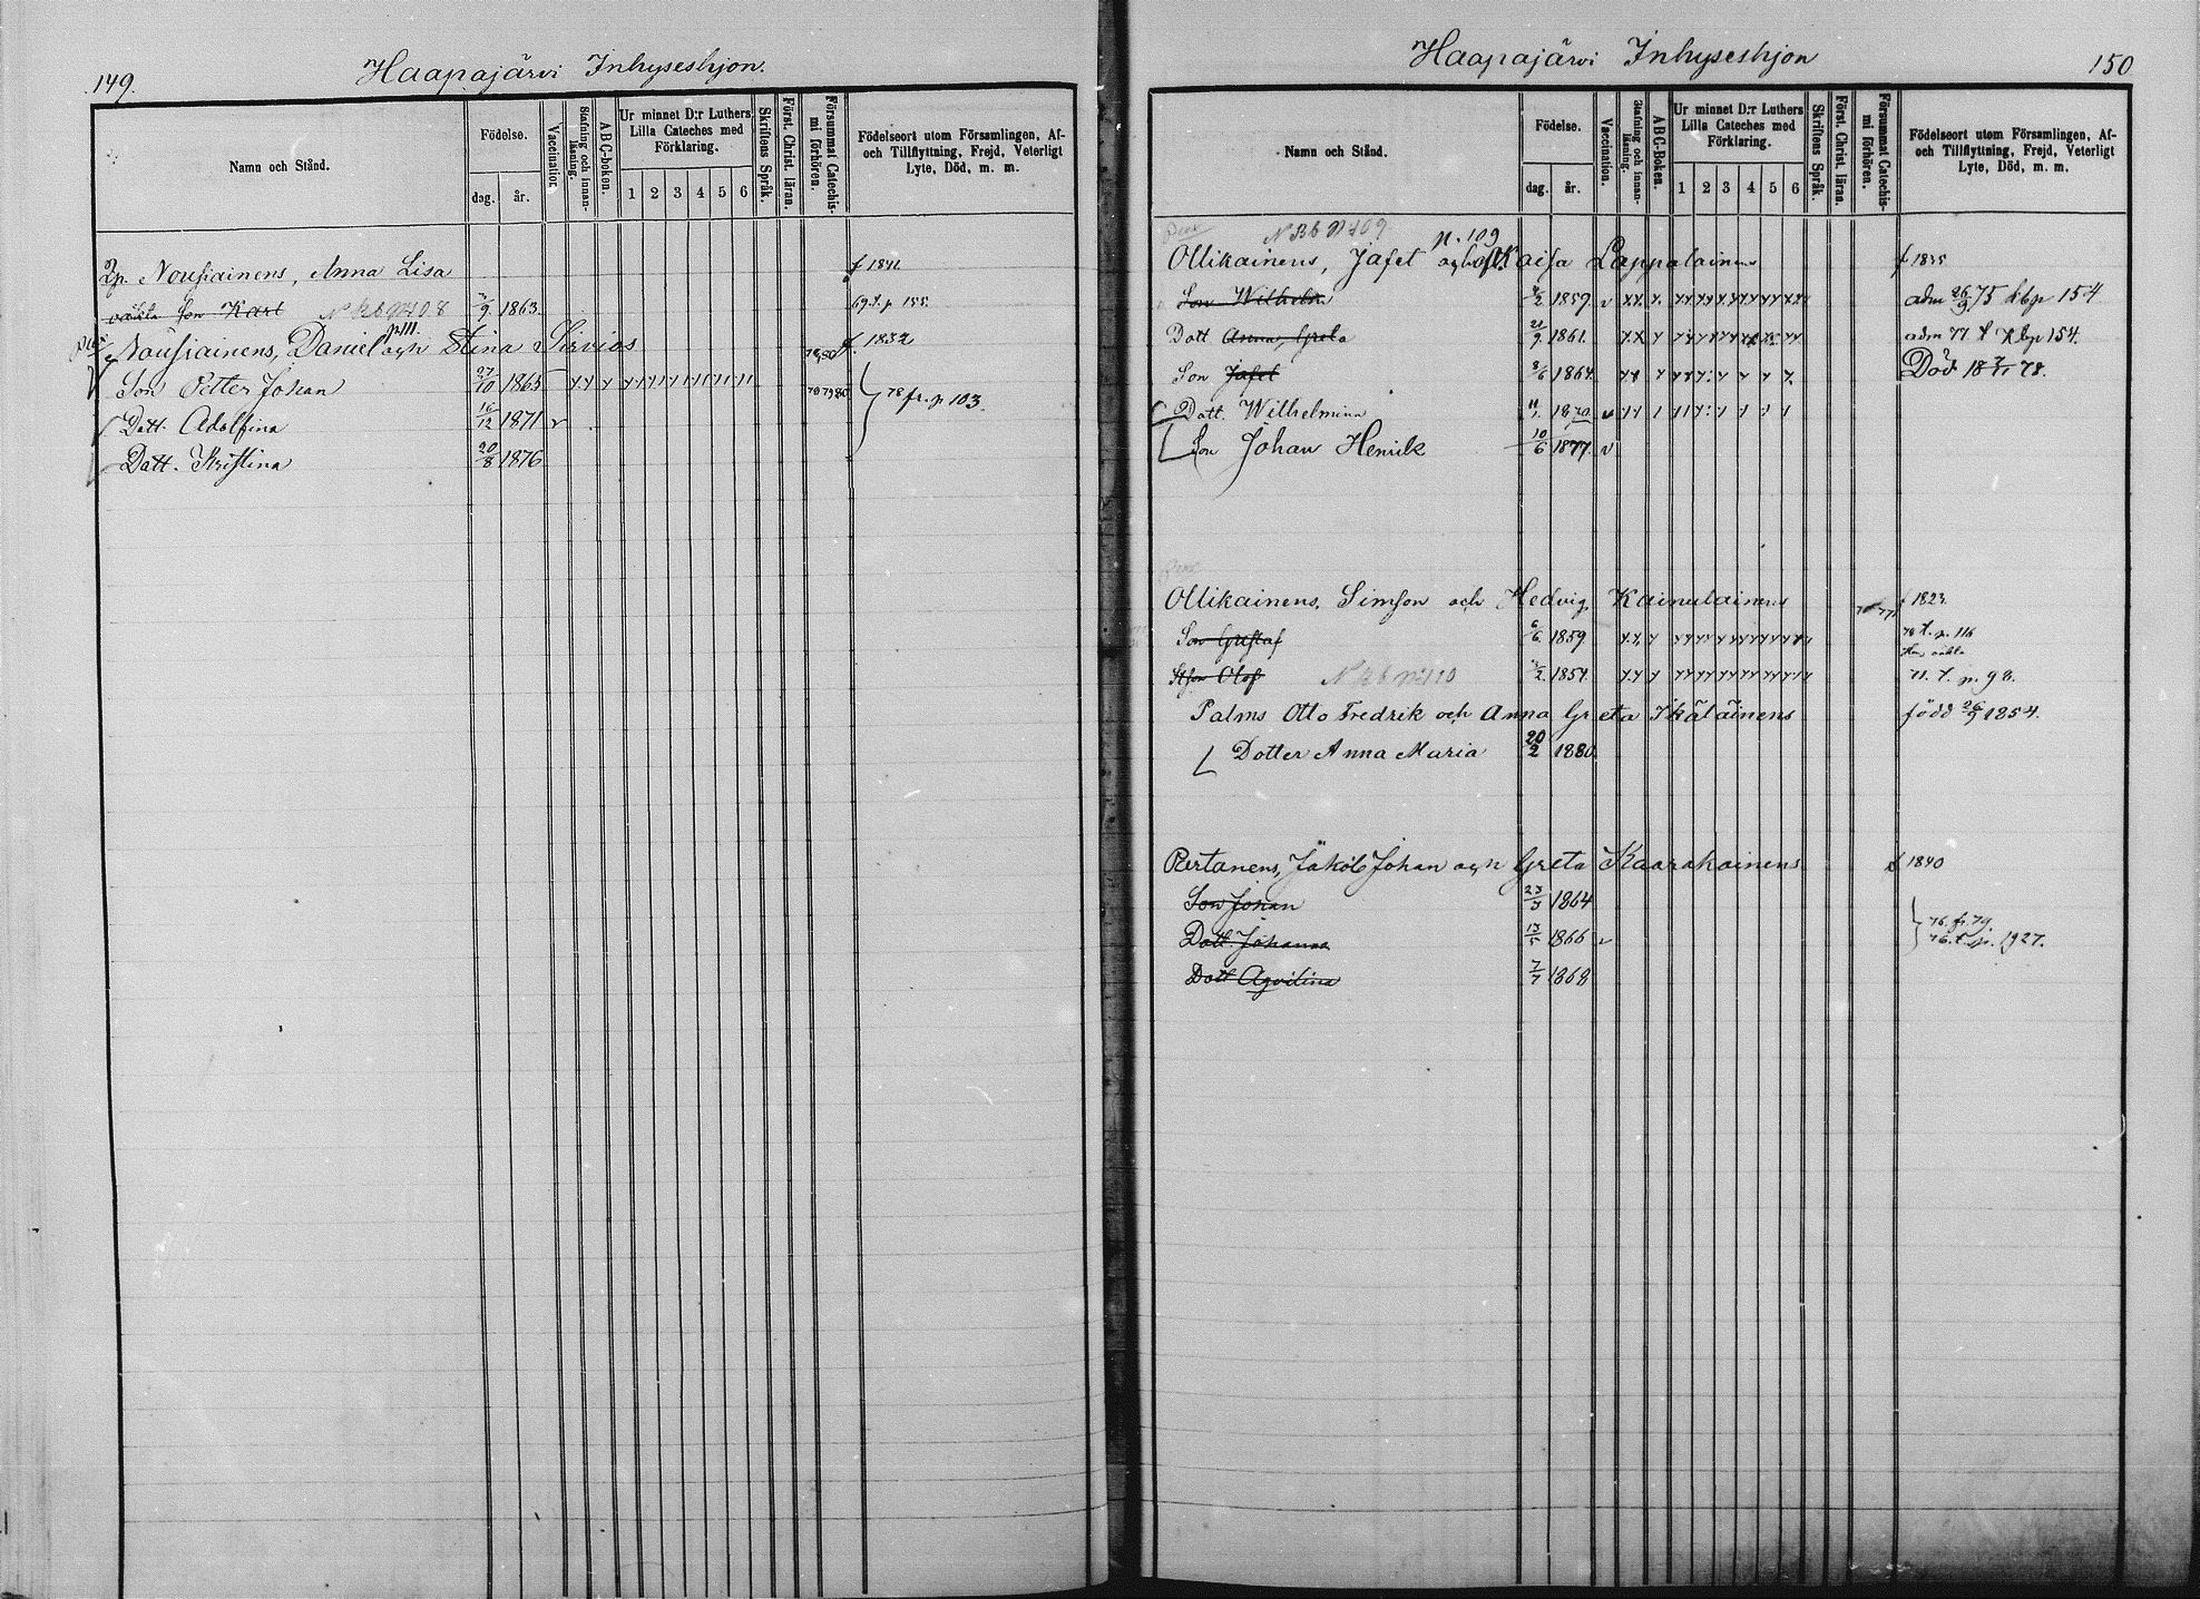 149.
Haapajärvi Inhyseshjon.
Namn och Stånd.
Födelse.
dag.
år.
Vaccination
Stafning och innan-läsning.
ABC-boken.
Ur minnet D:r Luthers Lilla Cateches med Förklaring.
1 2 3 4 5 6
Skriftens Språk.
Först. Christ. läran.
Försummat Catechis-mi förhören.
Födelseort utom Församlingen, Af- och Tillflyttning, Frejd, Veterligt Lyte, Död, m. m.
Nousiainens, Anna Lisa f 1841.
Son Karl 9 1863 69. t. p 155.
p 111.
Nousiainens, Daniel och Stina Sirviös 79,80 f. 1832
Son Petter Johan 27/10 1865 78 79 80
Dott. Adolfina 16/12 1871 v 78 fr. p 103.
Dott. Kristina 20/8 1876
Haapajärvi Inhyseshjon
150
Namn och Stånd.
Födelse.
dag.
år.
Vaccination.
Stafning och innan-läsning.
ABC-Boken.
Ur minnet D:r Luthers Lilla Cateches med Förklaring.
1 2 3 4 5 6
Skriftens Språk.
Först. Christ. läran.
Försummat Catechis-mi förhören.
Födelseort utom Församlingen, Af- och Tillflyttning, Frejd, Veterligt Lyte, Död, m. m.
p. 109
Ollikainens, Jafet Kaisa Lappalainens f 1835
Son Wilhelm 1859 v adm 26/9 75 kbp 154
Dott Anna Greta 21/9 1861. adm 77 t kbp 154.
Son Jafet 8/6 1864 Död 78.
Dott. Wilhelmina 11/1 1870 v
Son Johan Henrik 10/6 1877. v
Ollikainens, Simson och Hedvig Kainulainens f 1823.
Son Gustaf 6/6 1859 78 t. p. 116
Olof 1854. 71. t. p. 98.
Palms Otto Fredrik och Anna Greta Ikäläinens född 26/9 1854.
Dotter Anna Maria 20/2 1880
Partanens, Jakob Johan och Greta Kaarakainens f 1840
Son Johan 23/3 1864
Dott. Johanna 13/5 1866 v 76. fr. 79.
76. t. p. 1927.
Dott Agvilina 7/7 1868